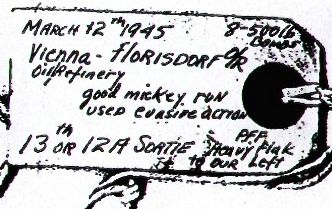 MARCH 12th 1945
8-500lb Bombs
Vienna - FLORISDORF O/R
OilRefinery
good mickey run
USED evasive action
13th OR 12A SORTIE
PFF
Heavy flak
to our Left